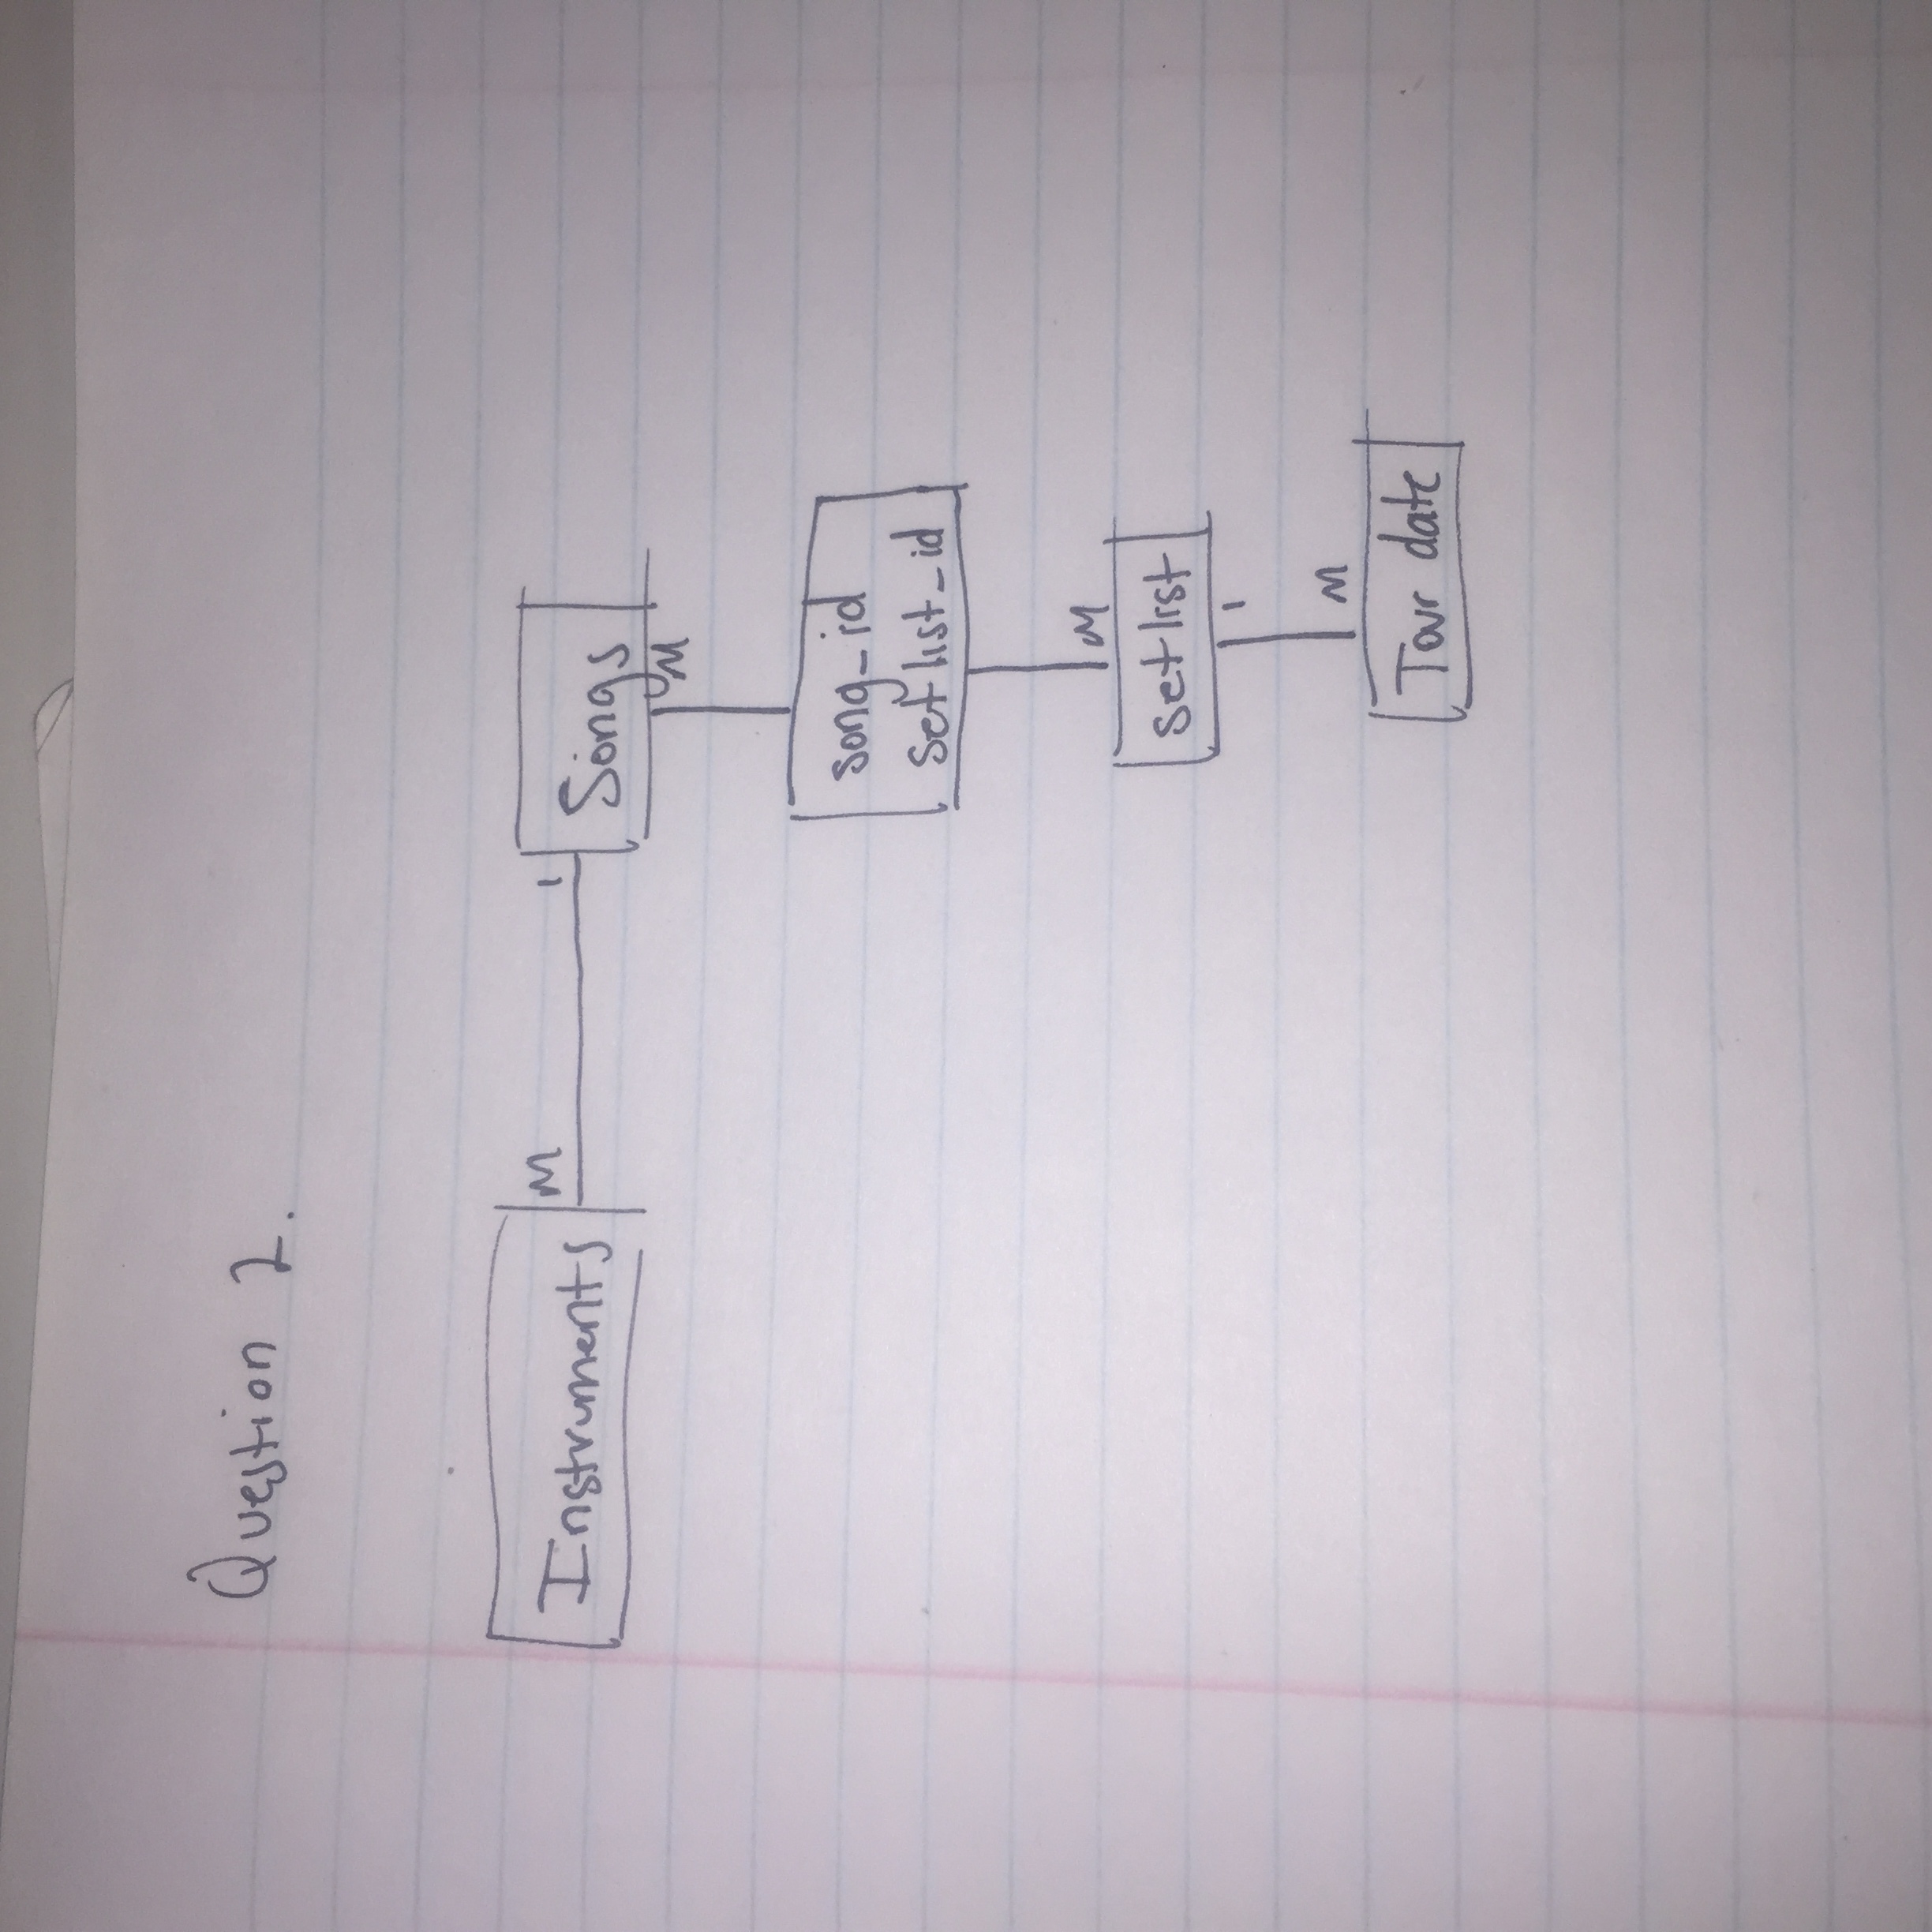 Question 2.
Instruments M 1 Songs
M
song_id
setlist_id
M
setlist
1
M
Tour date